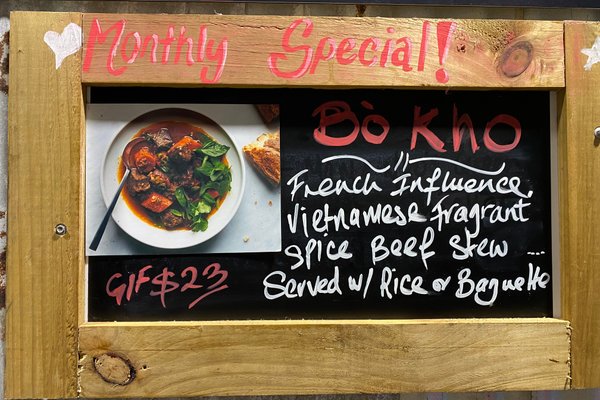 Monthly Special!
Bò Kho
French Influence,
Vietnamese Fragrant
Spice Beef Stew ....
Served w/ Rice or Baguette
GIF $23